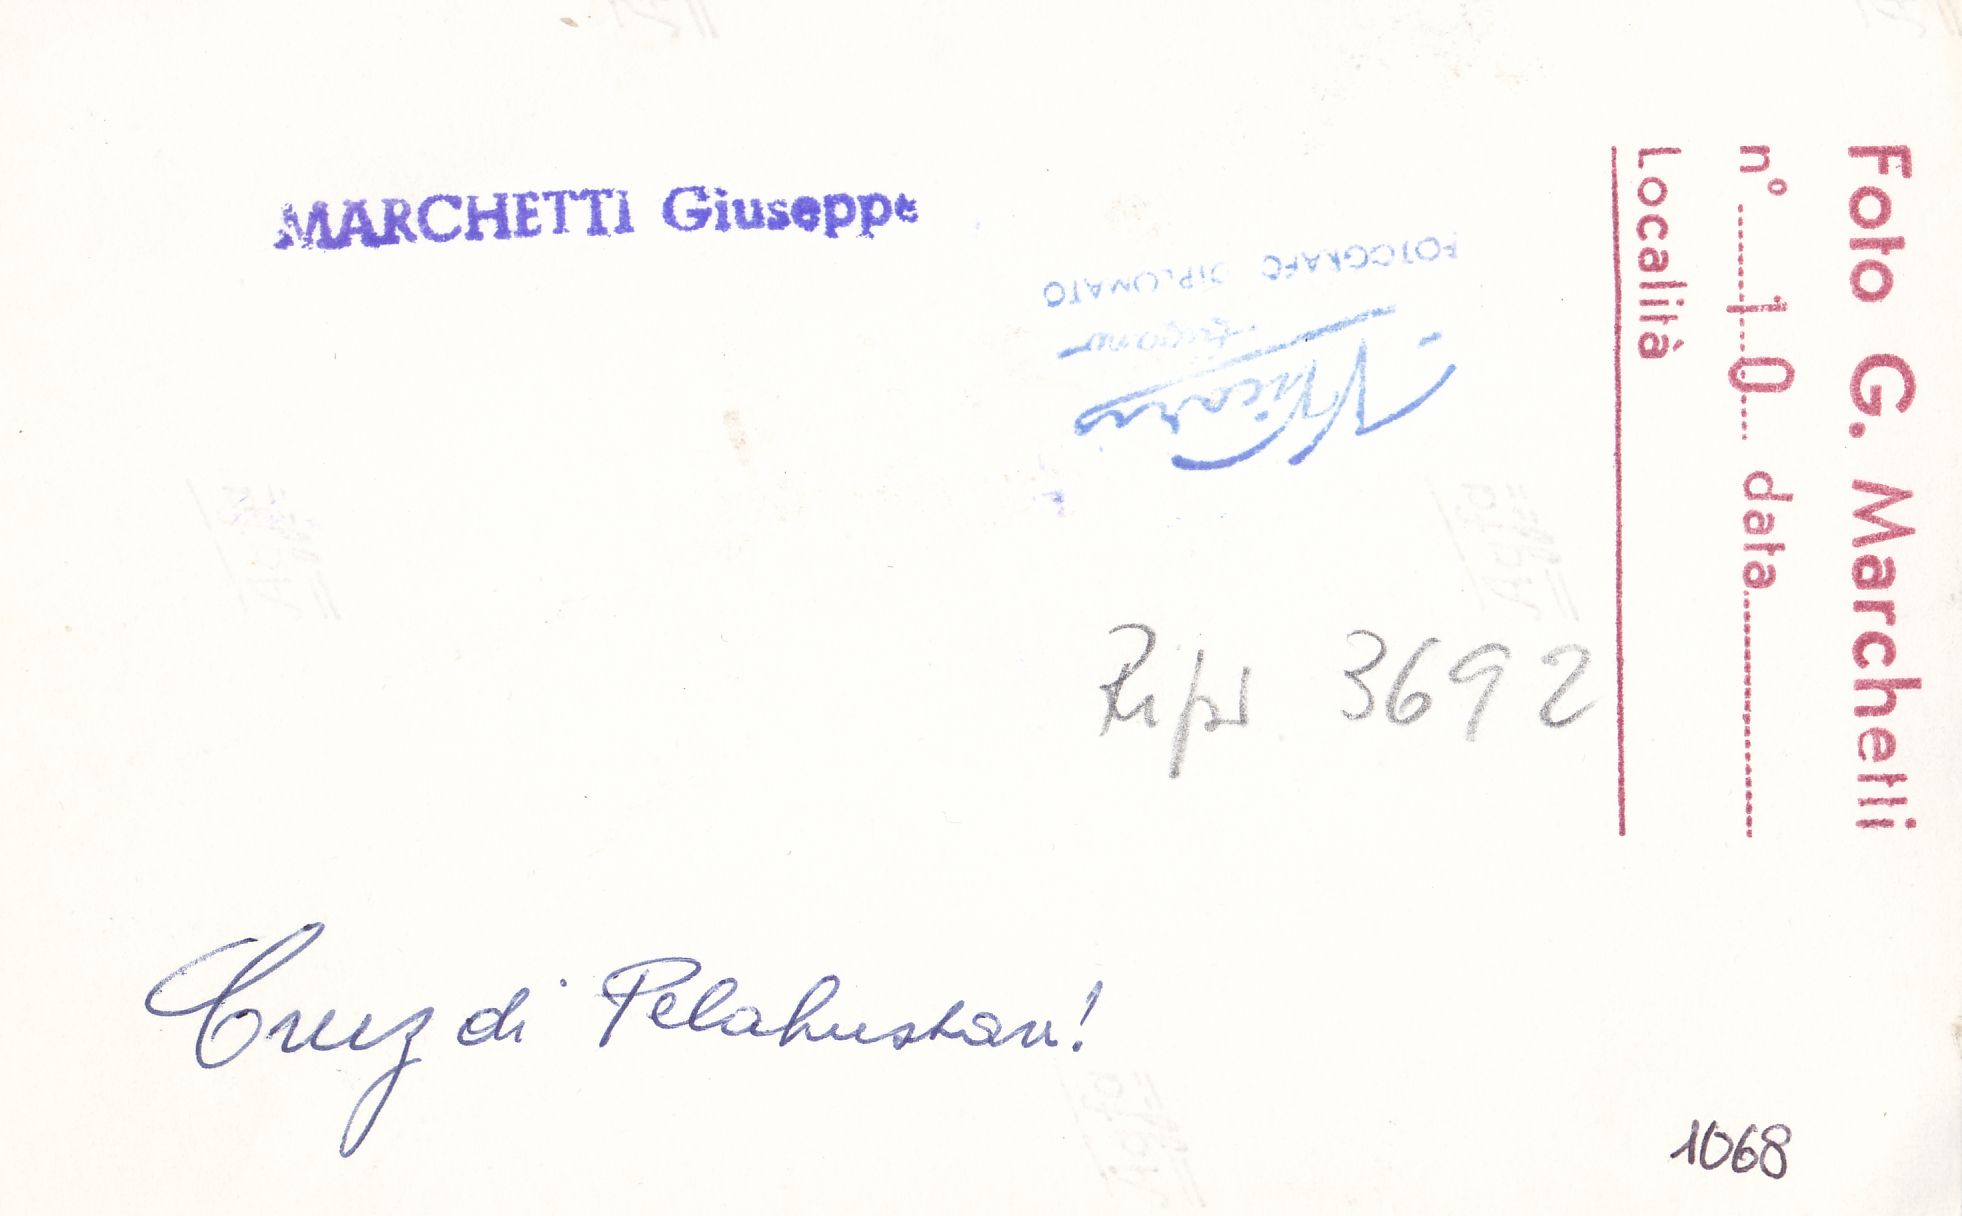 MARCHETTI Giuseppe
FOTOGRAFO DIPLOMATO
Vicari
Lugano
Foto G. Marchetti
n° 10 data
Località
3692
Cruz di Pelahustan!
1068